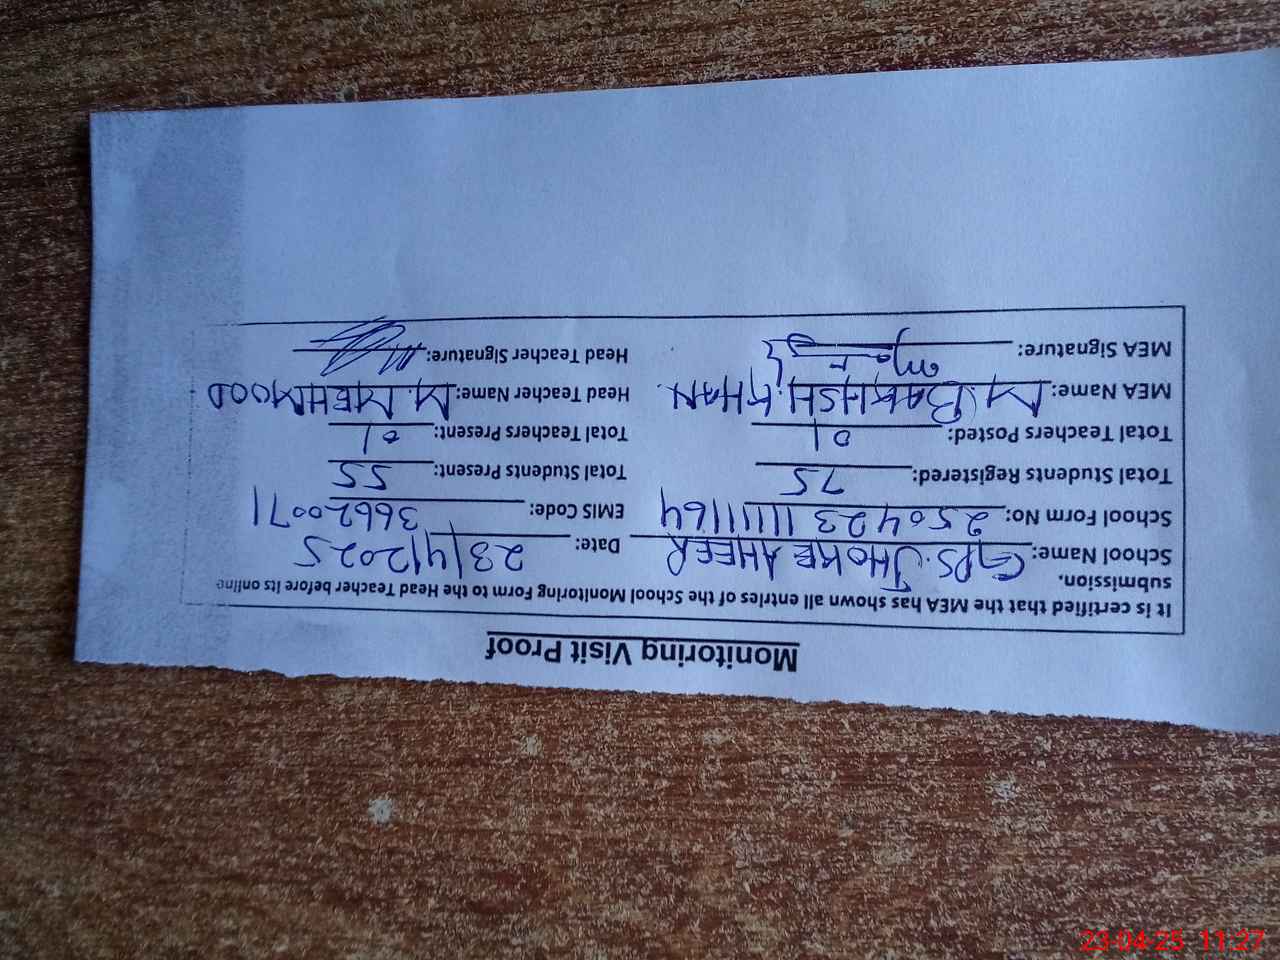 Monitoring Visit Proof
It is certified that the MEA has shown all entries of the School Monitoring Form to the Head Teacher before its online
submission.
School Name: GPS. JHOKE AHEER Date: 23/4/2025
School Form No: EMIS Code: 36620071
Total Students Registered: 75 Total Students Present: 55
Total Teachers Posted: 01 Total Teachers Present: 01
MEA Name: M. BAKHSH. KHAN. Head Teacher Name: M. MEHMOOD
MEA Signature: Head Teacher Signature:
23-04-25 11:27